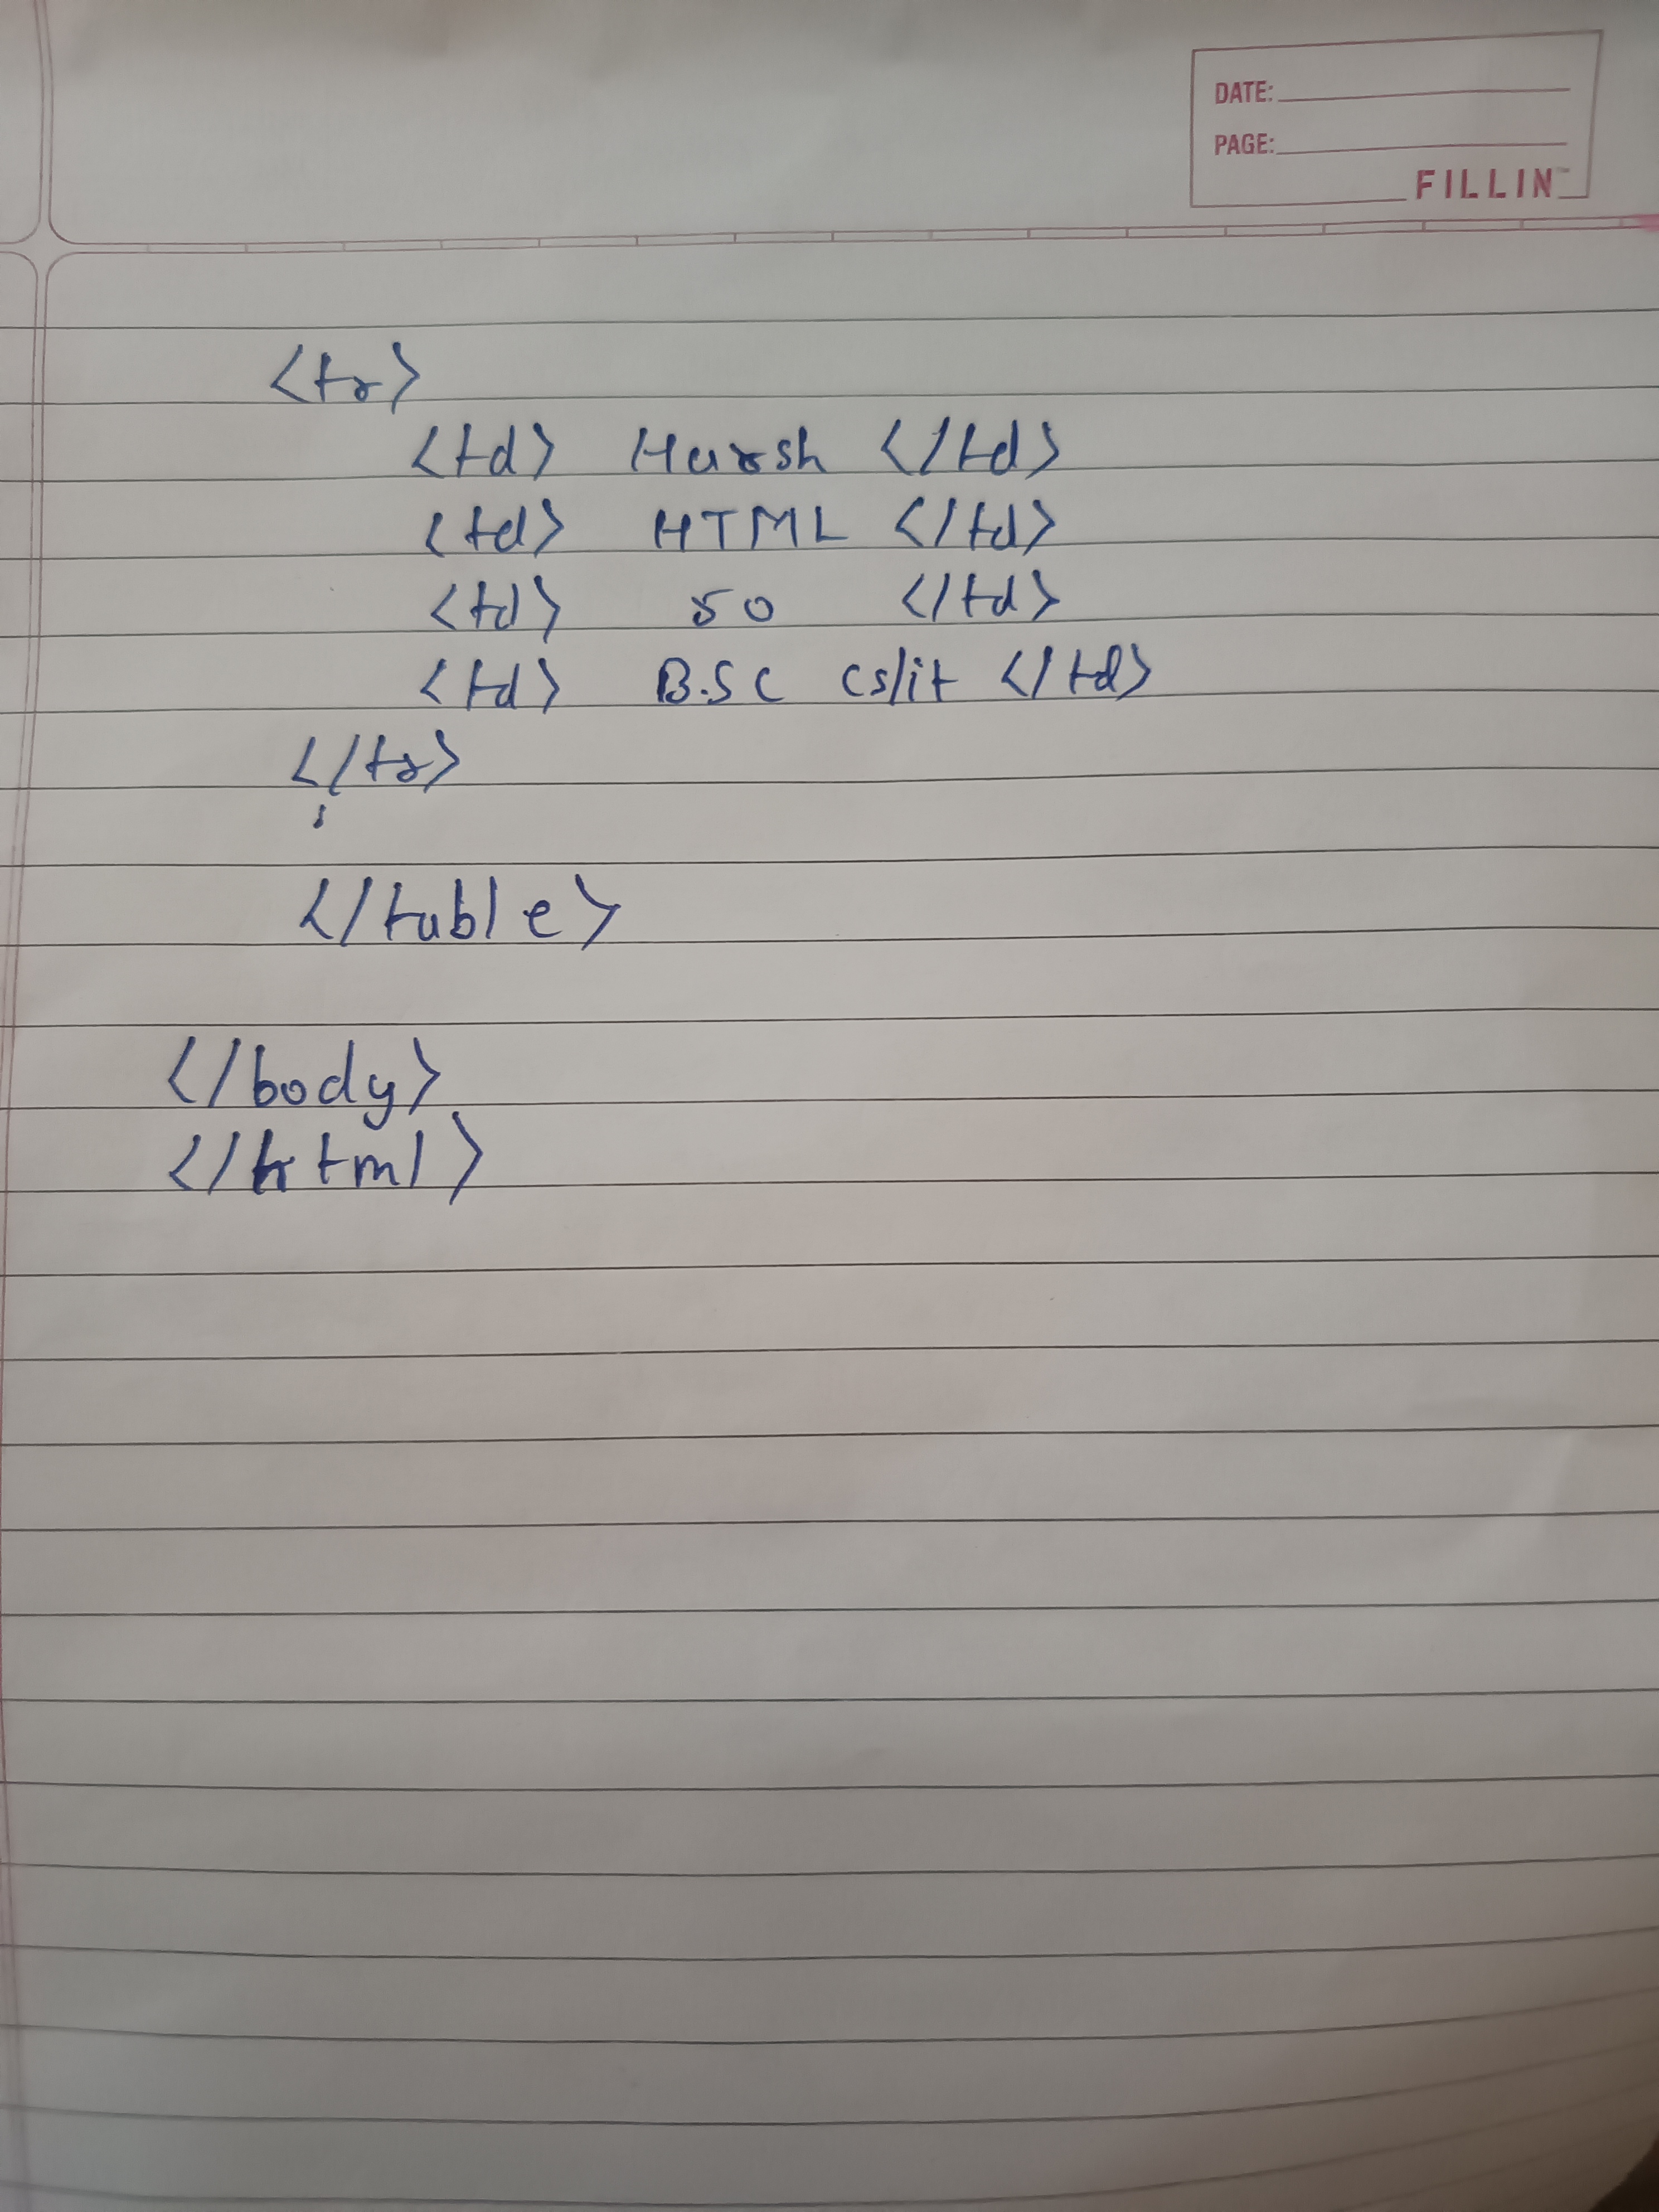 DATE:
PAGE:
FILLIN
<tr>
<td> Harsh </td>
<td> HTML </td>
<td> 50 </td>
<td> B.SC CS/it </td>
</tr>
</table>
</body>
</html>